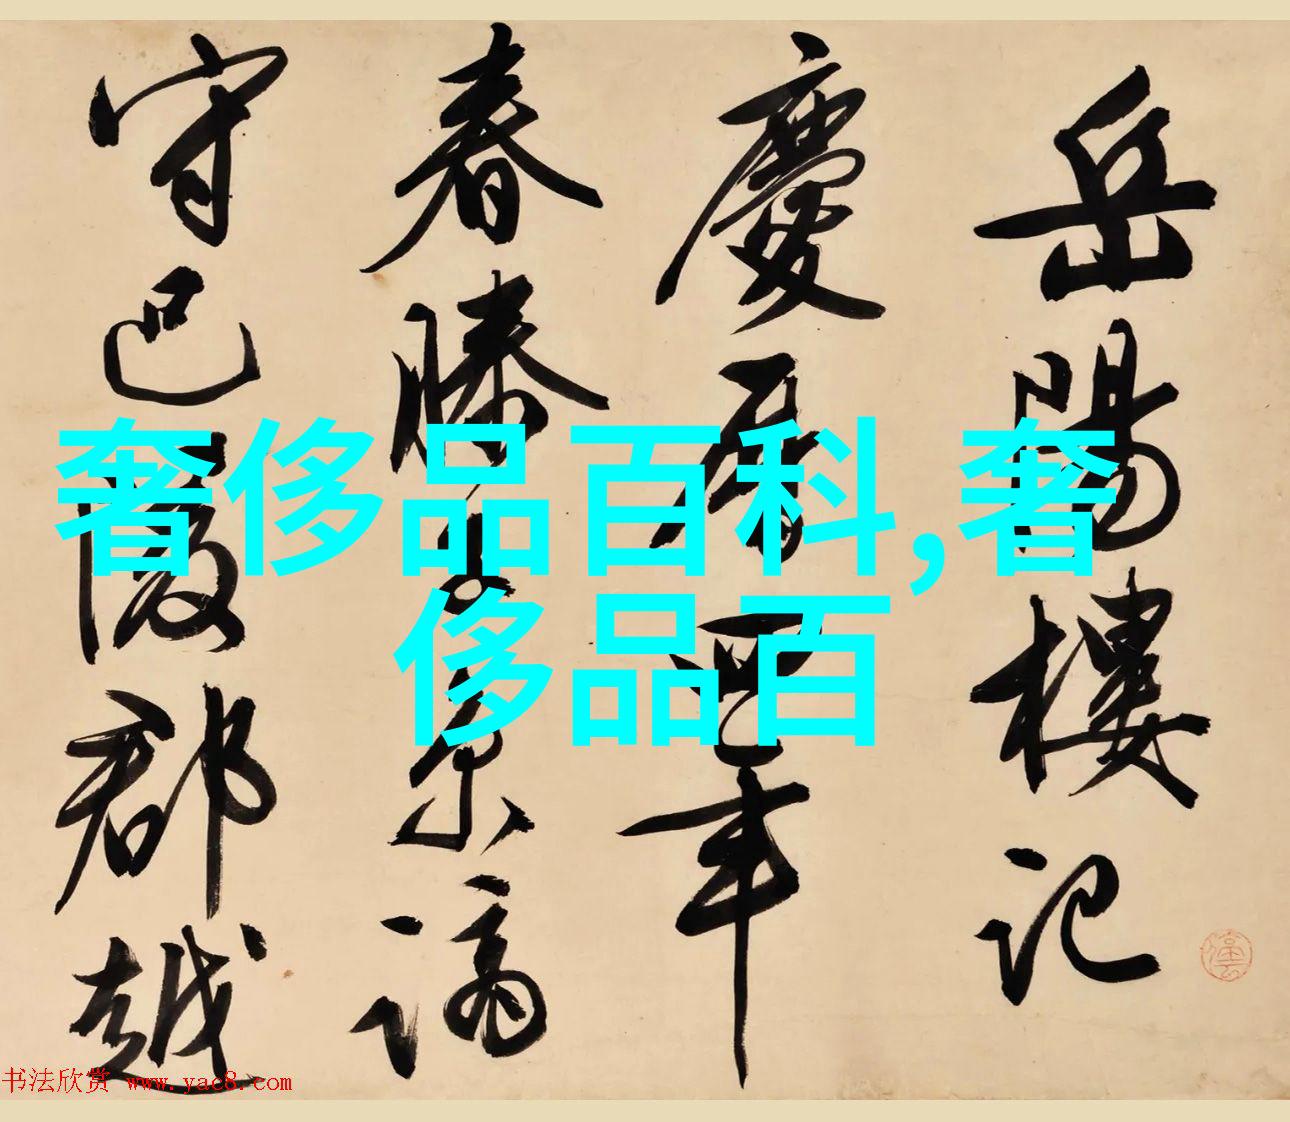 岳陽樓記
慶曆四年
春滕子京謫
守巴陵郡越
奢侈品百科,奢
侈品百
书法欣赏 www.yac8.com